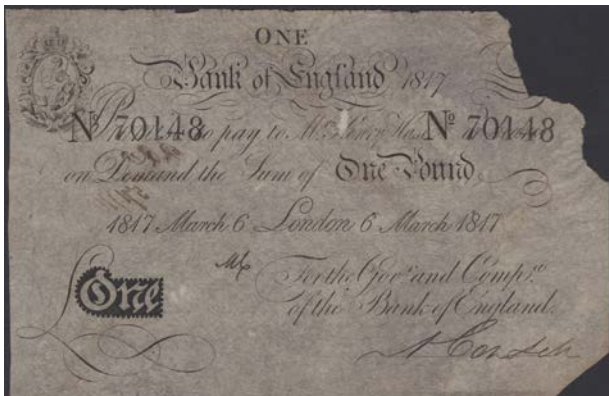 ONE
Bank of England 1817
Nº 70148 to pay to Mr. Henry Nº 70148
on Demand the Sum of One Pound
1817 March 6 London 6 March 1817
For the Govr. and Compa.
One of the Bank of England.